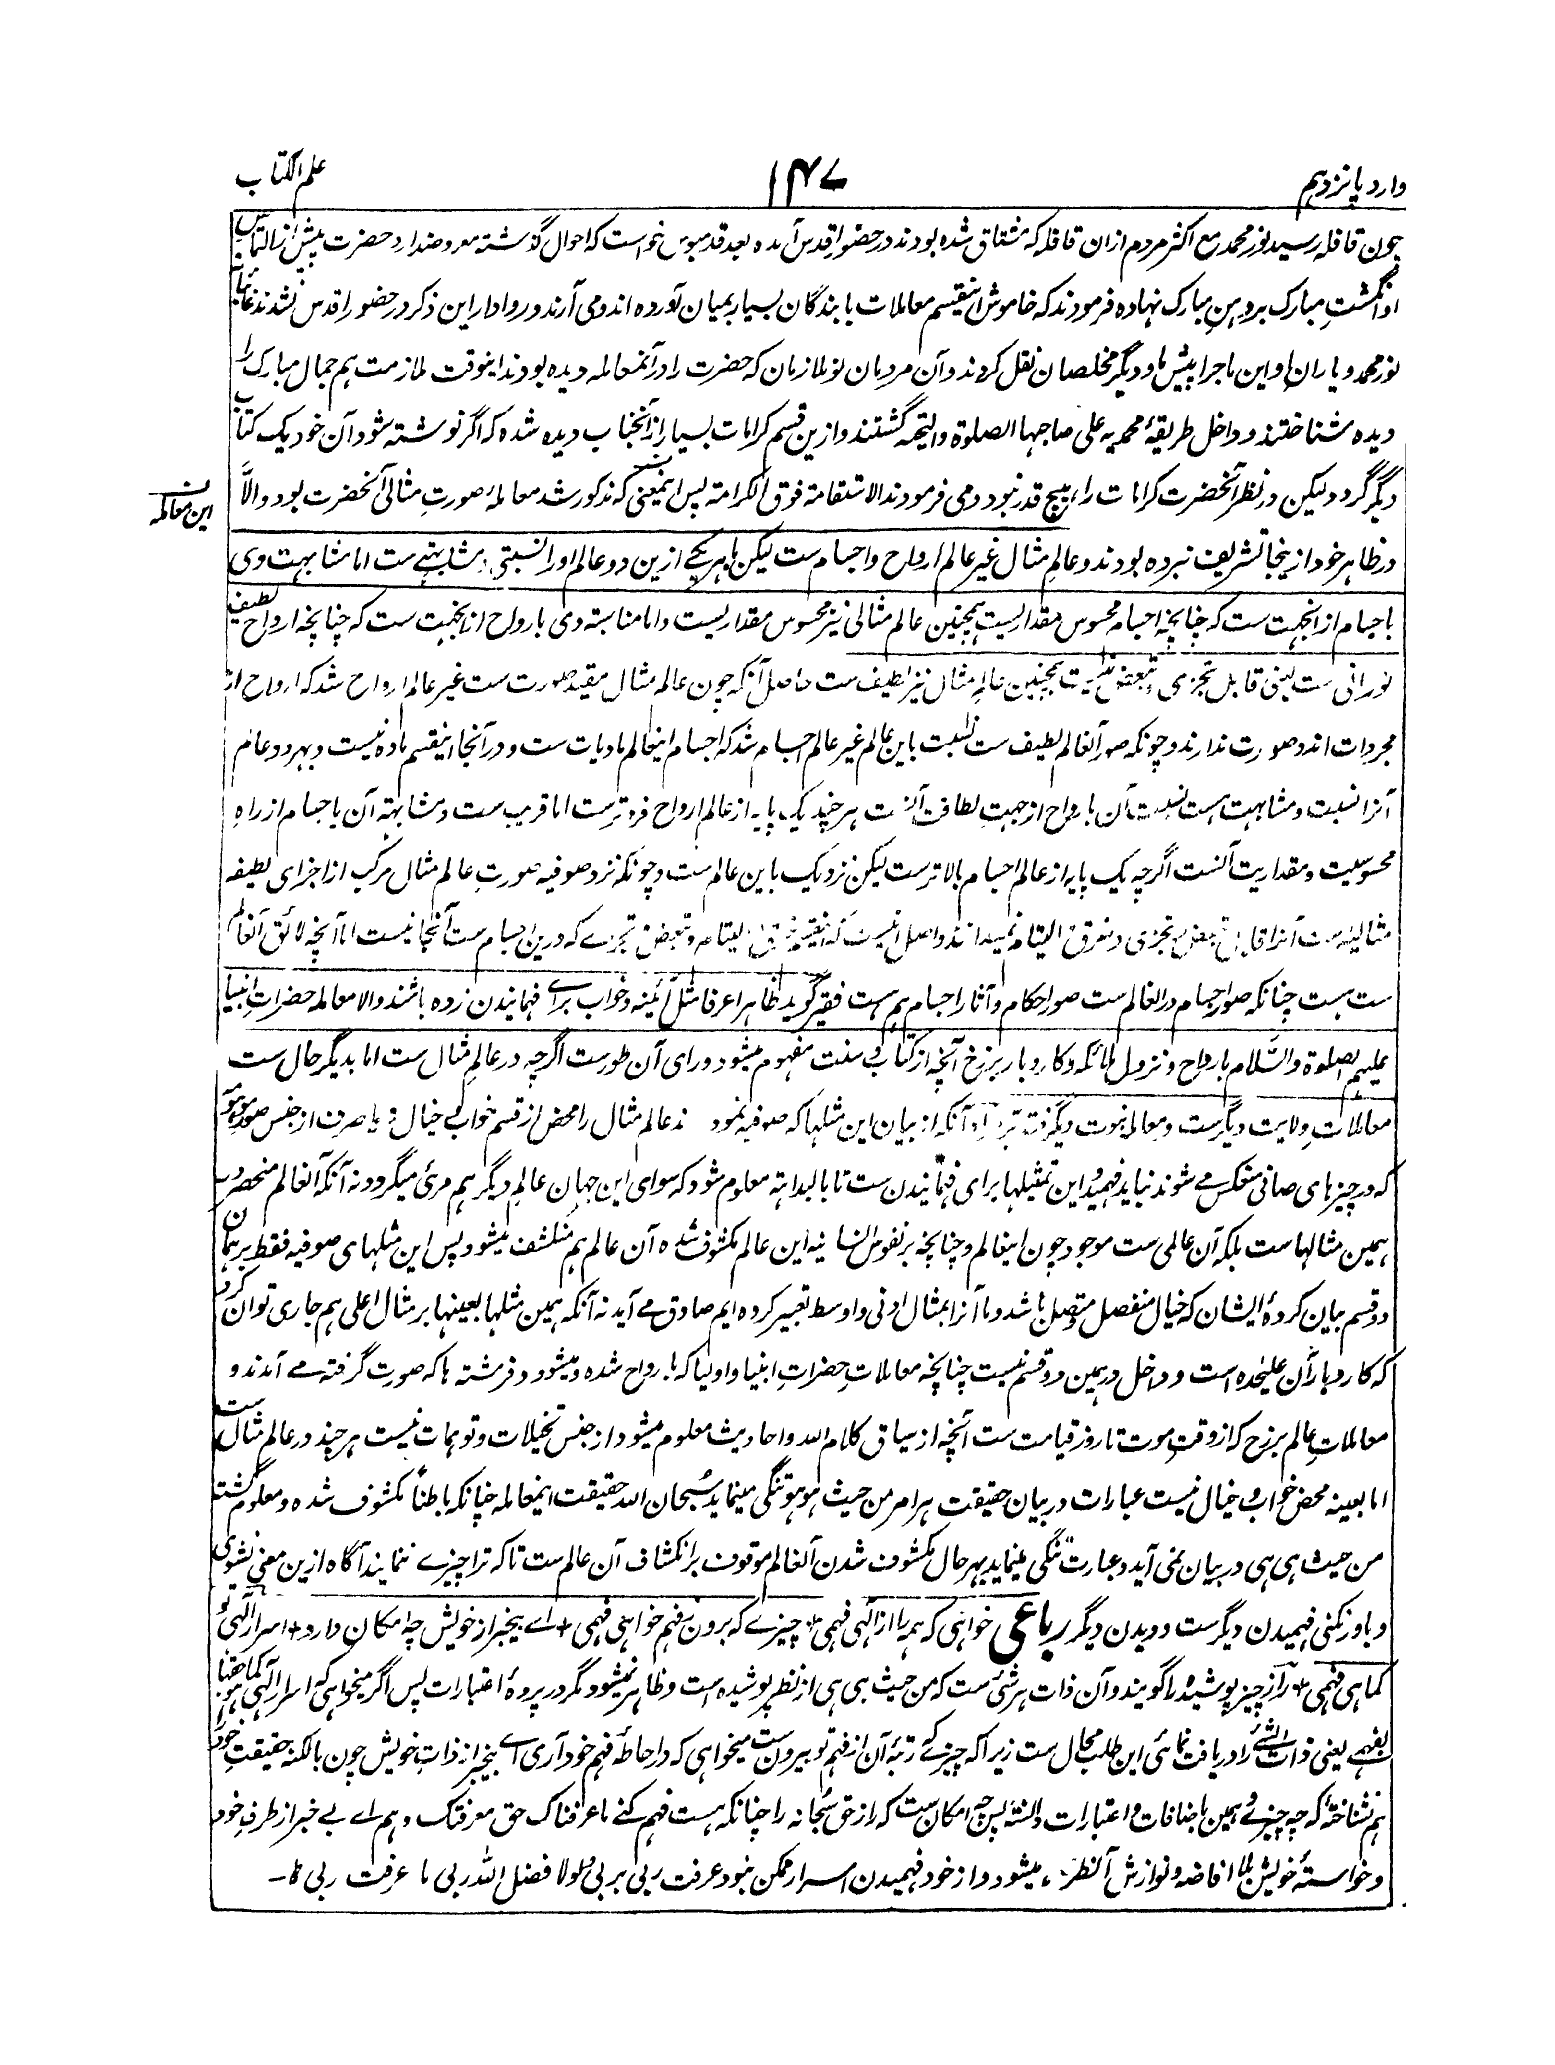 وارد پانزدهم
۱۴۷
علم الکتاب
چون قافله رسید نور محمد مع اکثر مردم ازان قافله که مشتاق شده بودند در حضور اقدس آمده بعد قدمبوس خواست که احوال گذشته معروضدارد حضرت پیش از التماس
او انگشتِ مبارک بر دهنِ مبارک نهاده فرمودند که خاموش اینقسم معاملات با بندگان بسیار بمیان آورده اند و می آرند و روادار این ذکر در حضور اقدس نشدند غائبانه
نور محمد و یاران او این ماجرا پیش ما و دیگر مخلصان نقل کردند و آن مردمان نو ملازمان که حضرت را در آنمعامله دیده بودند اینوقت ملازمت هم جمال مبارک را
دیده شناختند و داخل طریقهٔ محمدیه علی صاحبها الصلوة والتحیه گشتند و ازین قسم کرامات بسیار از آنجناب دیده شده که اگر نوشته شود آن خود یک کتاب
دیگر گردد و لیکن در نظر آنحضرت کرامات را هیچ قدر نبود و می فرمودند الاستقامة فوق الکرامة پس اینمعنی که مذکور شد معاملهٔ صورتِ مثالی آنحضرت بود والّا
این معامله
در ظاهر خود ازینجا تشریف نبرده بودند و عالمِ مثال غیر عالم ارواح و اجسام ست لیکن با هر یکے ازین دو عالم او را نسبتی و مشابهتے ست اما مشابهت وی
با جسام از انجهت ست که چنانچه اجسام محسوس مقداریست همچنین عالم مثالی نیز محسوس مقداریست و اما مناسبت وی بارواح ازانجهت ست که چنانچه ارواح لطیف
نورانی ست یعنی قابل تجزی و تبعض نیست همچنین عالمِ مثال نیز لطیف ست حاصل آنکه چون عالم مثال مقید صورت ست غیر عالم ارواح شد که ارواح از
مجردات اند و صورت ندارند و چونکه صور آنعالم لطیف ست نسبت باین عالم غیر عالم اجسام شد که اجسام اینعالم مادیات ست و در آنجا اینقسم ماده نیست و بهر دو عالم
آنرا نسبت و مشابهت هست نسبت آن بارواح از جهتِ لطافت آنست هر چند یک پایه از عالم ارواح فروترست اما قریب ست و مشابهة آن با جسام از راهِ
محسوسیت و مقداریت آنست اگرچه یک پایه از عالم اجسام بالاترست لیکن نزدیک باین عالم ست و چونکه نزد صوفیه صورتِ عالم مثال مرکب از اجزای لطیفه
مثالیه ست آنرا قابل تبعض و تجزی و خرق و التیام نمیدانند و اصل اینست که اینقسم خرق و التیام و تبعض و تجزے که درین اجسام ست آنجا نیست اما آنچه لائق آنعالم
ست هست چنانکه صور اجسام در العالم ست صور احکام و آثار اجسام هم هست فقیر گوید ظاهرا عرفا مثل آئینه و خواب برای فهمانیدن زده باشند والا معامله حضراتِ انبیا
علیهم الصلوة والسّلام بارواح و نزول ملائکه و کاروبار برزخ آنچه از کتاب و سنت مفهوم میشود ورای آن طورست اگرچه در عالمِ مثال ست اما بدیگر حال ست
معاملاتِ ولایت دیگرست و معامله نبوت دیگر فتدبّر مراد آنکه از بیان این مثلها که صوفیه نموده اند عالم مثال را محض از قسم خواب و خیال و یا صرف از جنس صور موهومه
که در چیزهای صافی منعکس می شوند نباید فهمید و این تمثیلها برای فهمانیدن ست تا بالبداهة معلوم شود که سوای این جهان عالمِ دیگر هم مرئی میگردد نه آنکه آنعالم منحصر در
همین مثالهاست بلکه آن عالمی ست موجود چون اینعالم و چنانچه بر نفوس انسانیه این عالم مکشوف شده آن عالم هم منکشف میشود پس این مثلهای صوفیه فقط بر همان
دو قسم بیان کردهٔ ایشان که خیال منفصل و متصل باشد و ما آنرا بمثال ادنی و اوسط تعبیر کرده ایم صادق مے آید نه آنکه همین مثلها بعینها بر مثال اعلی هم جاری توان کرد
که کاروبار آن علیٰحده است و داخل در همین دو قسم نیست چنانچه معاملاتِ حضراتِ انبیا و اولیا که بارواح شده و میشود و فرشته ها که صورت گرفته مے آمدند و
معاملاتِ عالم برزخ که از وقتِ موت تا روز قیامت ست آنچه از سیاقِ کلام الله و احادیث معلوم میشود از جنس تخیلات و توهمات نیست هر چند در عالم مثال ست
اما بعینه محض خواب و خیال نیست عبارات در بیان حقیقت هر امر من حیث هو هو تنگی مینماید سُبحان الله حقیقت اینمعامله چنانکه باطناً مکشوف شده و معلوم گشته
من حیث هی هی در بیان نمی آید و عبارت تنگی مینماید بهرحال مکشوف شدن آنعالم موقوف بر انکشاف آن عالم ست تا که ترا چیزے ننمایند آگاه ازین معنی نشوی
و باور نکنی فهمیدن دیگرست و دیدن دیگر رباعی خواهی که همه راز الٰهی فهمی + چیزے که برون ز فهم خواهی فهمی + اے بیخبر از خویش چه امکان دارد + اسرار الٰهی تو
کما هی فهمی + راز چیز پوشیده را گویند و آن ذات هر شئ ست که من حیث هی هی از نظر پوشیده است و ظاهر نمیشود مگر در پردهٔ اعتبارات پس اگر میخواهی که اسرار الٰهی کما هی
بفهمے یعنی ذات الشئ را دریافت نمائی این طلب محال ست زیرا که چیزے که رتبهٔ آن از فهم تو بیرون ست میخواهی که در احاطهٔ فهم خود آری اے بیخبر از ذات خویش چون بالکنه حقیقتِ خود
هم نشناختهٔ که چه چیزے و همین باضافات و اعتبارات دانستهٔ پس چه امکان ست که راز حق سبحانه را چنانکه هست فهم کنے ما عرفناک حق معرفتک و هم اے بے خبر از طرفِ خود
و خواستهٔ خویش بلا افاضه و نوازش میشود و از خود فهمیدن اسرار ممکن نبود عرفت ربی بربی ولولا فضل الله ربی ما عرفت ربی ۱۲-